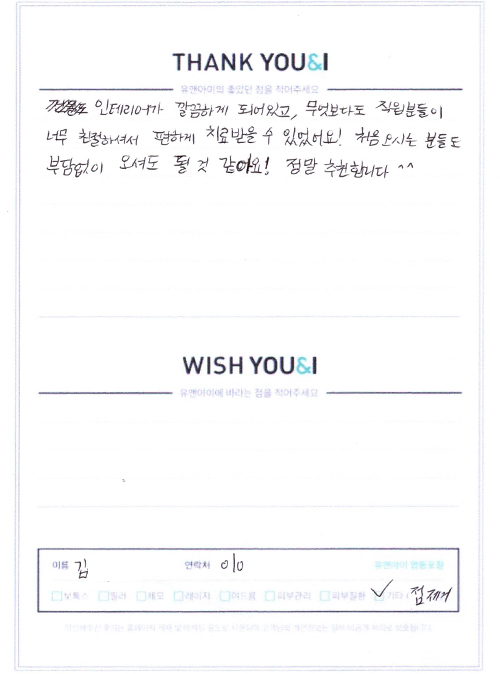 THANK YOU&I
유앤아이의 좋았던 점을 적어주세요
인테리어가 깔끔하게 되어있고, 무엇보다도 직원분들이
너무 친절하셔서 편하게 치료받을 수 있었어요! 처음 오시는 분들도
부담없이 오셔도 될 것 같아요! 정말 추천합니다 ^^
WISH YOU&I
유앤아이에 바라는 점을 적어주세요
이름 김 연락처 010 유앤아이 명동포함
보톡스 필러 제모 레이저 여드름 피부관리 피부질환 기타 ( 점제거